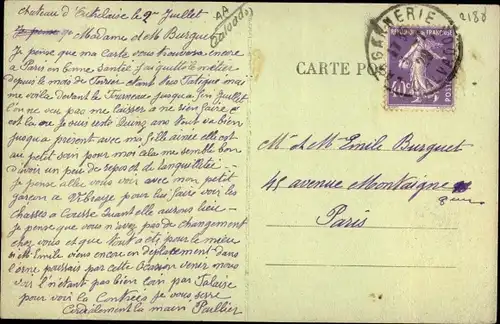 chateau d'Estrelaine le 9 Juillet
Madame et M Burguet
Je pense que ma carte vous trouvera encore
a Paris en bonne santée j'ai quitté le métier
depuis le mois de Fevrier étant tres fatigué mai
me voila devant le fourneau jusqu'a fin Juillet
l'on ne veu pas me laisser a ne rien faire c'
est la ou je suis resté Quinz ans tout va bien
jusqu'a présent avec ma fille ainée elle est
au petit soin pour moi cela me semble bon
d'avoir un peu de repos et de tanquillitée
je pense allé vous voir avec mon petit
garçon a Vibraye pour lui faire voir les
chasses a Cousse quant elle aurons lieu
Je pense que vous n'avez pas de changement
chez vous et que tout a été pour le mieu
si M. Emile vien encore en deplacement dans
l'orne pourrais pas cette ocasion venir nous
voir n'étant pas bien loin par
pour voir la Contrées je vous serre
Cordialement la main Paillier
AA
2180
CARTE PO
GARNERIE
POSTES
M. et M Emile Burguet
45 avenue Montaigne
Paris